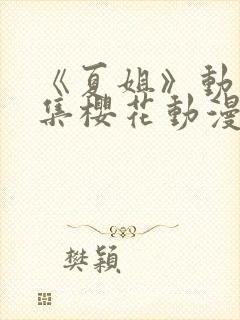 《夏姐》動
集櫻花動漫
樊穎